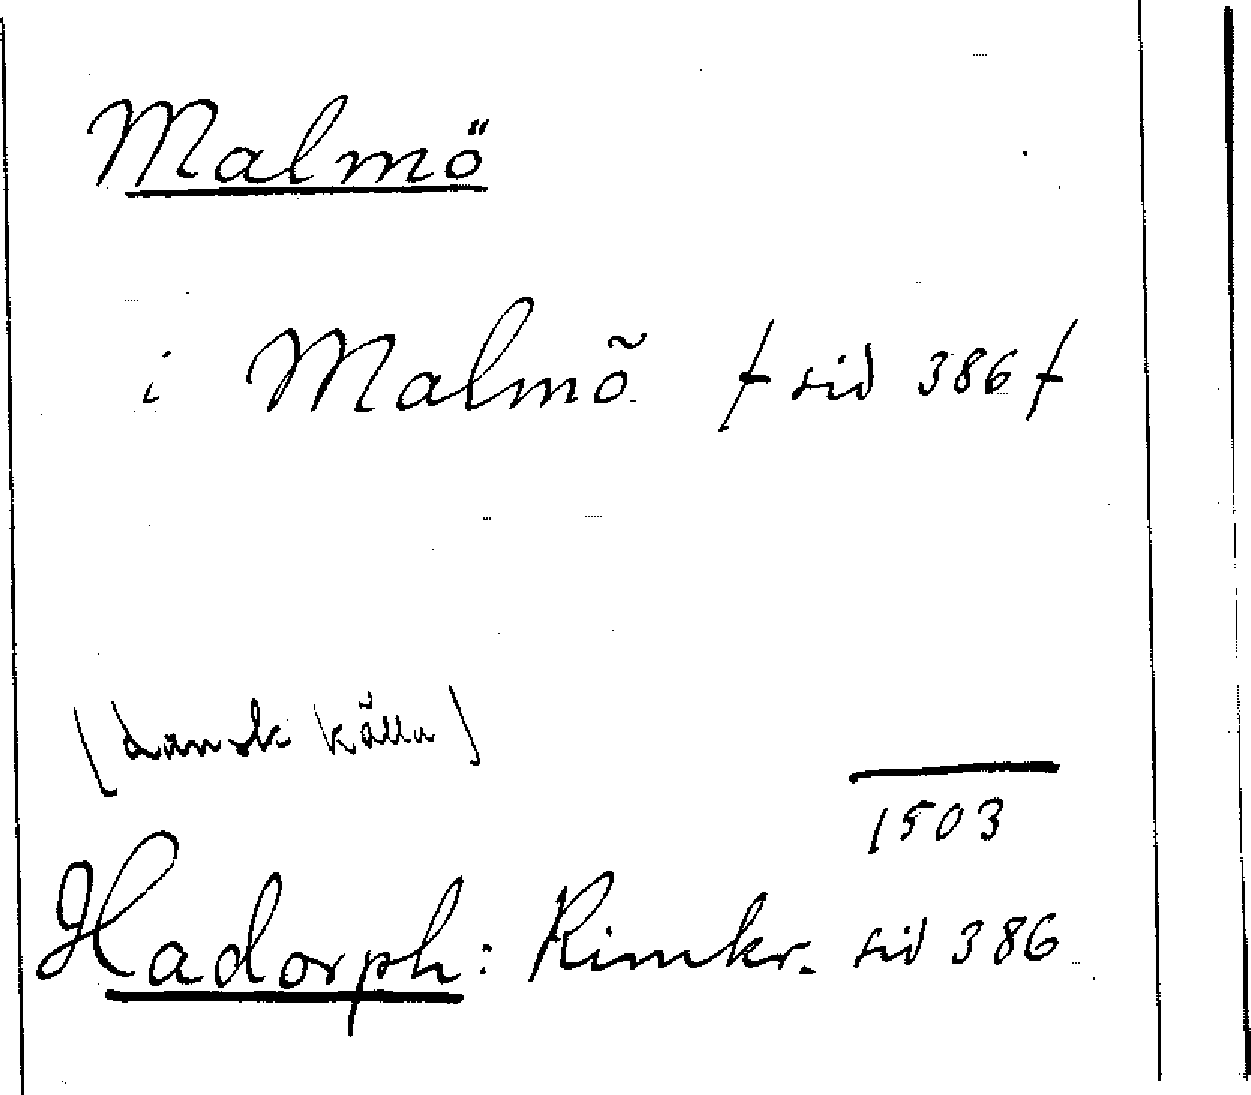 Malmö
i Malmõ ƚ sid 386 ƚ
(dansk källa)
1503
Hadorph: Rimkr. sid 386